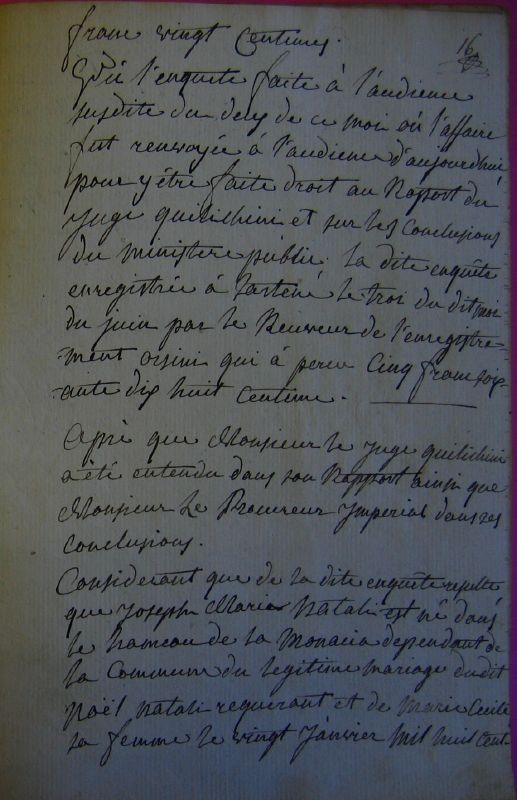 franc vingt Centimes.
16
Vû l'enquête faite à l'audience
susdite du deux de ce mois où l'affaire
fut renvoyée à l'audience d'aujourdhui
pour y être faite droit au Rapport du
Juge quilichini et sur les Conclusions
du ministere public. la dite enquête
enregistrée à Sartené le troi du dit moi
du juin par le Receveur de l'enregistre-
-ment orsini qui à percu Cinq franc soix-
-ante dix huit Centime.
Aprè que Monsieur le juge quilichini
a été entendu dans son Rapport ainsi que
Monsieur Le Procureur Imperial dans ses
Conclusions.
Considerant que de la dite enquête resulte
que Joseph Marie Natali est né dans
le hameau de la Monacia dependant de
la Commune du legitime mariage dudit
Noël Natali requerant et de Marie Cecile
sa femme le vingt Janvier mil huit Cent